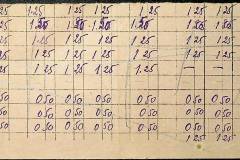 25 1.25 1 25 1 25 1 25 1 25 1 25
25 1.50 1 50 1 50 1 25 1 50 1 25
25 1.25 1 25 1 25 1 25 1 25 1 25
25 1 25 1 25 1 25 1 25 1 25 1 25
25 1 25 1 25 1 25 1.25 — —
50 0 50 0 50 0 50 0 50 0 50 0 50
50 0 50 0 50 0 50 0 50 0 50 0 50
50 0 50 0 50 0 50 0 50 0 50 0 50
1 25 1 25